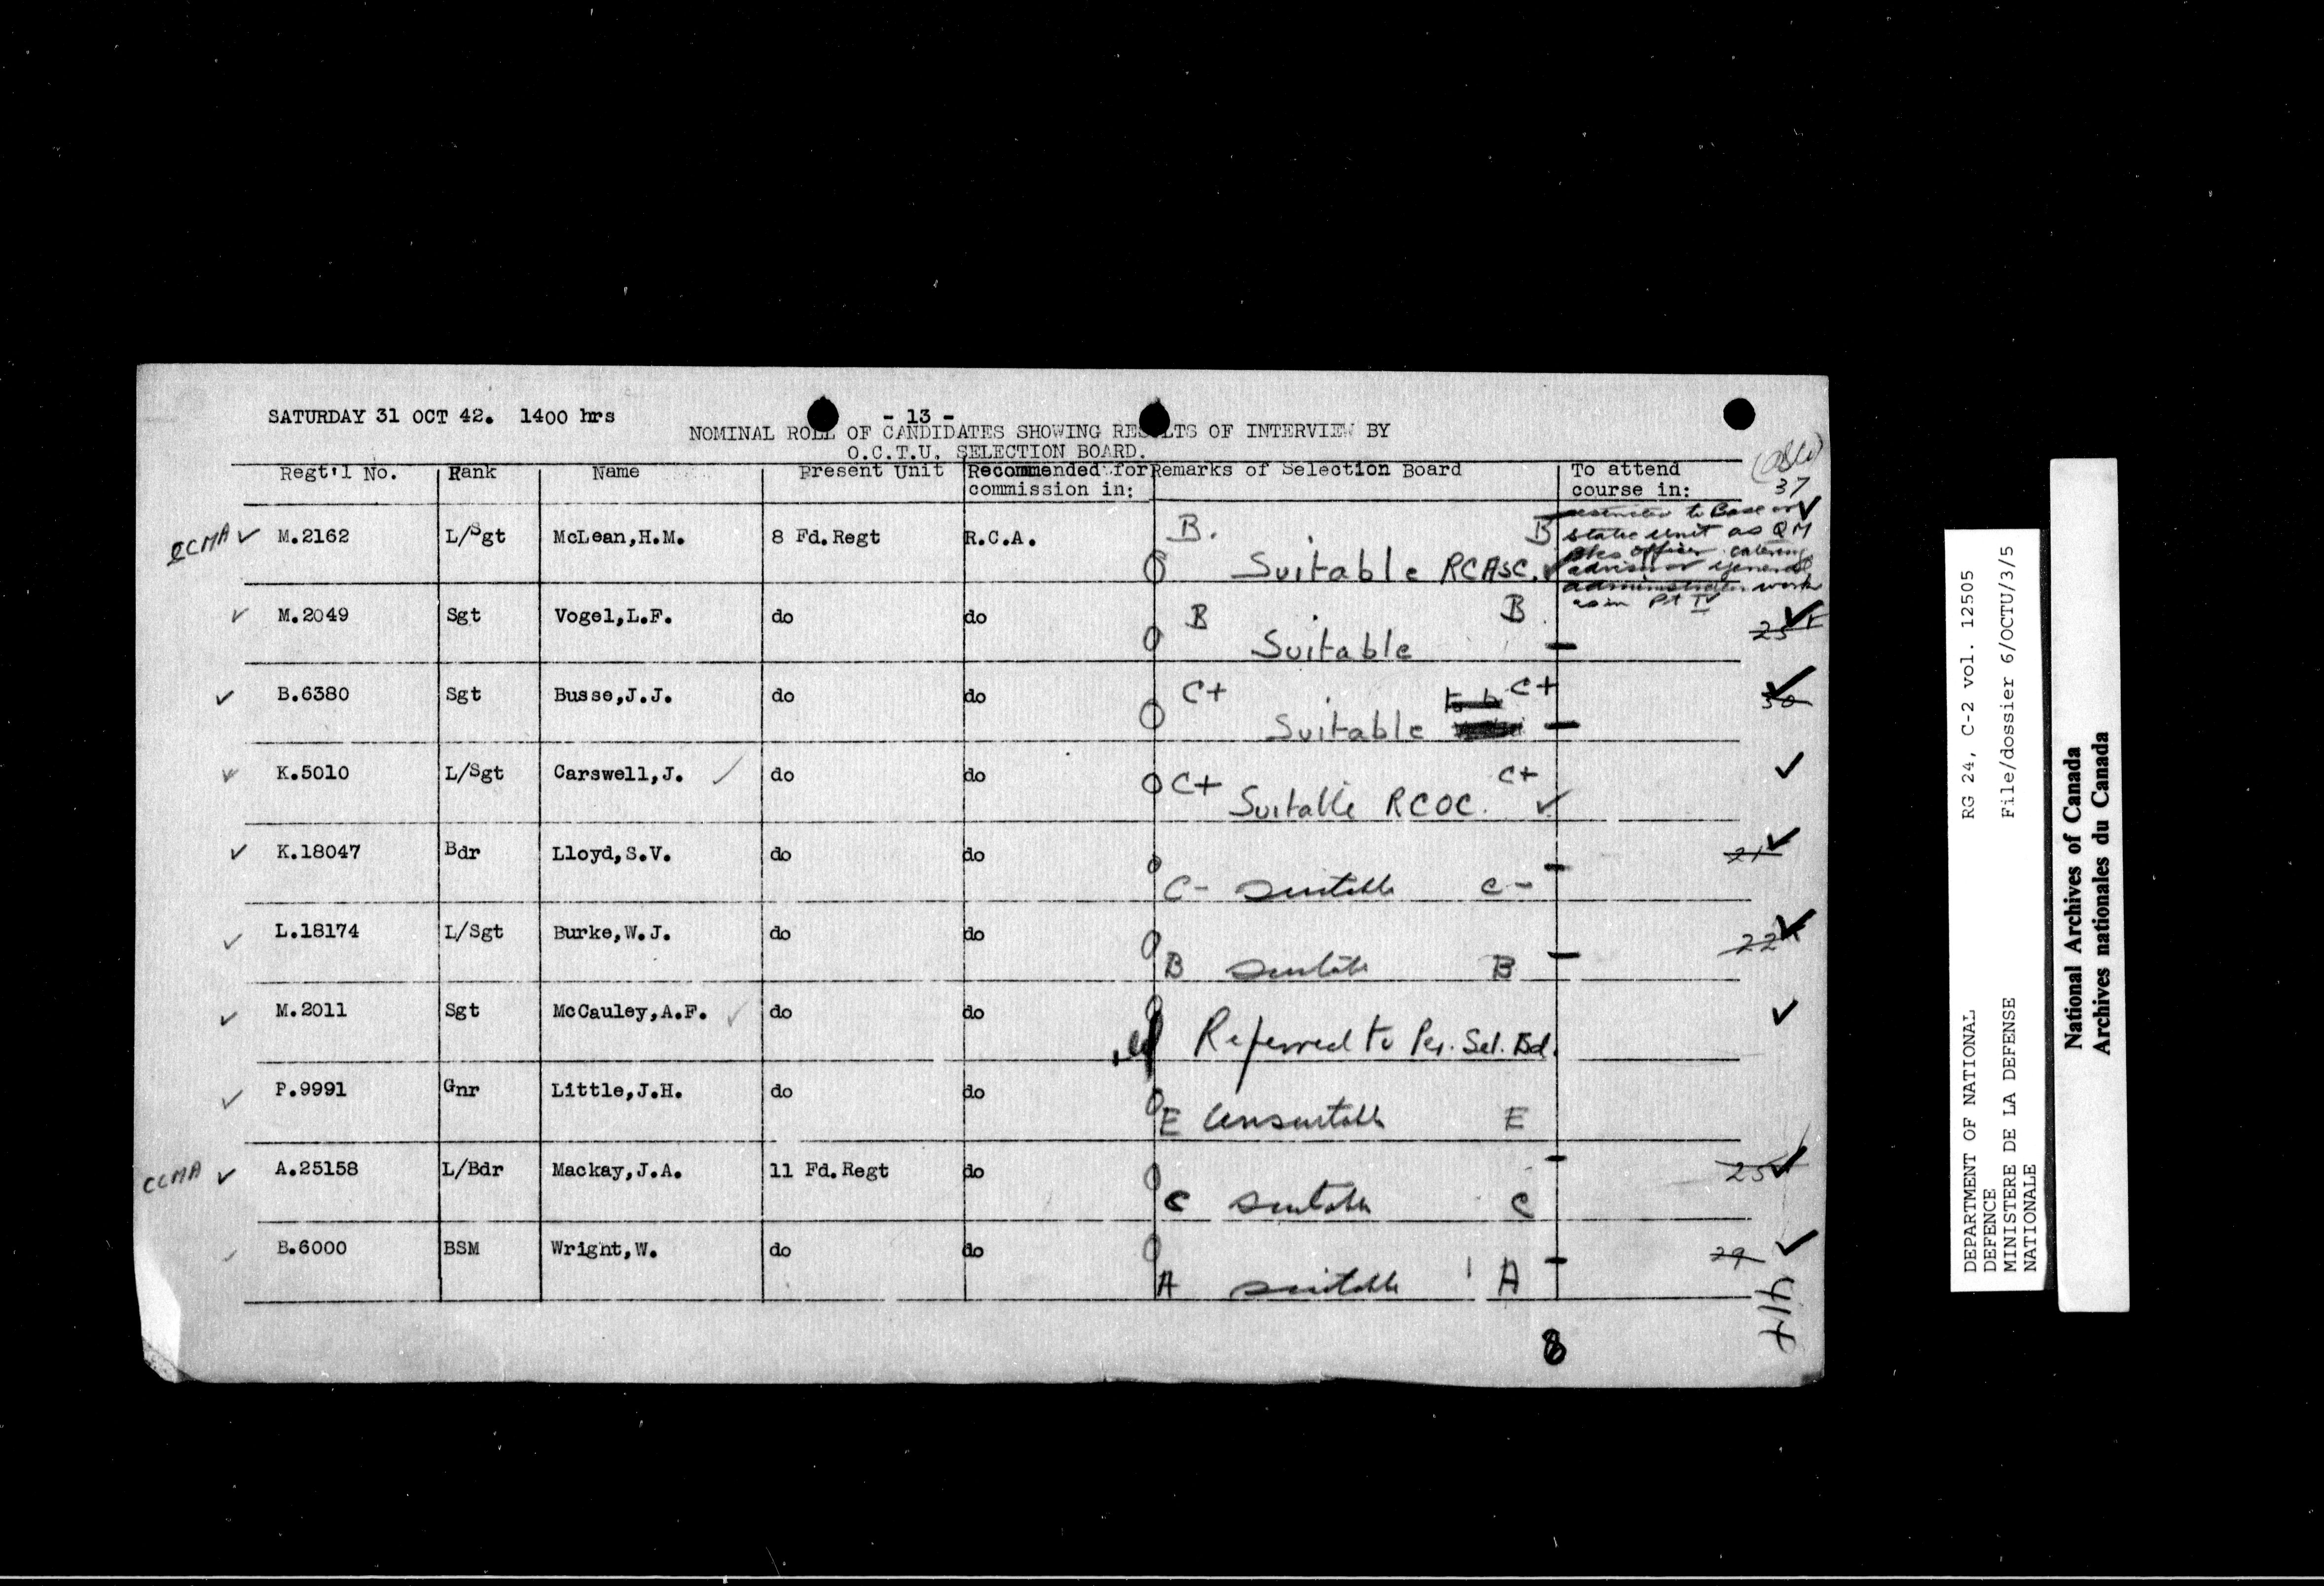 SATURDAY 31 OCT 42. 1400 hrs - 13 -
NOMINAL ROLL OF CANDIDATES SHOWING RESULTS OF INTERVIEW BY
O.C.T.U. SELECTION BOARD.
Regt'l No. Rank Name Present Unit Recommended for commission in: Remarks of Selection Board To attend course in:
37
CCMA M.2162 L/Sgt McLean,H.M. 8 Fd.Regt R.C.A. B. B
Suitable RCASC.
restricted to Base or
static unit as QM
officer catering
advisor general
administration work
as in Pt IV
M.2049 Sgt Vogel,L.F. do do B B
Suitable
B.6380 Sgt Busse,J.J. do do C+ C+
Suitable 30
K.5010 L/Sgt Carswell,J. do do C+ C+
Suitable RCOC.
K.18047 Bdr Lloyd,S.V. do do 21
C- suitable C-
L.18174 L/Sgt Burke,W.J. do do 22
B suitable B
M.2011 Sgt McCauley,A.F. do do
Referred to Per. Sel. Bd.
F.9991 Gnr Little,J.H. do do
E Unsuitable E
CCMA A.25158 L/Bdr Mackay,J.A. 11 Fd.Regt do 25
C suitable C
B.6000 BSM Wright,W. do do 29
A suitable A
8
DEPARTMENT OF NATIONAL DEFENCE RG 24, C-2 vol. 12505
MINISTERE DE LA DEFENSE NATIONALE File/dossier 6/OCTU/3/5
National Archives of Canada
Archives nationales du Canada